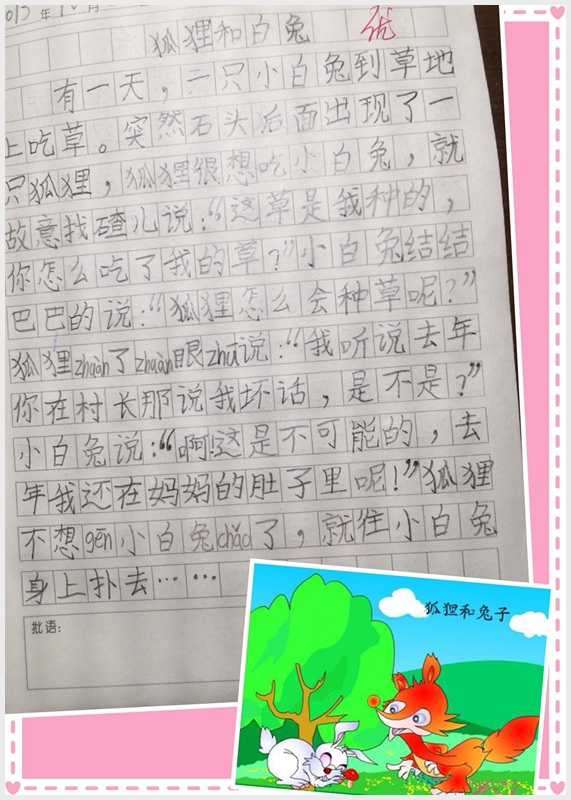 2015年10月
狐狸和白兔
优
有一天，一只小白兔到草地
上吃草。突然石头后面出现了一
只狐狸，狐狸很想吃小白兔，就
故意找碴儿说：“这草是我种的，
你怎么吃了我的草？”小白兔结结
巴巴的说：“狐狸怎么会种草呢？”
狐狸zhuàn了zhuàn眼zhū说：“我听说去年
你在村长那说我坏话，是不是？”
小白兔说：“啊！这是不可能的，去
年我还在妈妈的肚子里呢！”狐狸
不想gēn小白兔chǎo了，就往小白兔
身上扑去……
批语：
狐狸和兔子